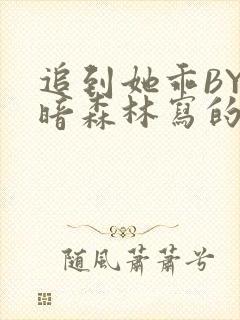 追到她乖BY
暗森林寫的
随風蕭蕭兮